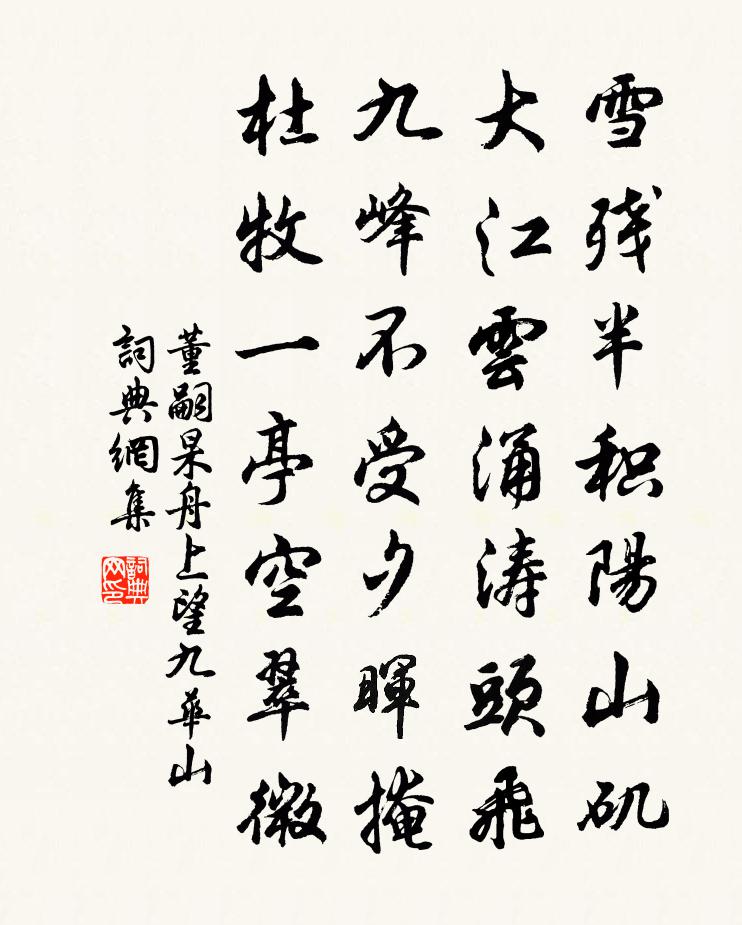 雪残半积陽山矶
大江雲涌涛頭飛
九峰不受夕暉掩
杜牧一亭空翠微
董嗣杲舟上望九華山
詞典網集
詞典网印